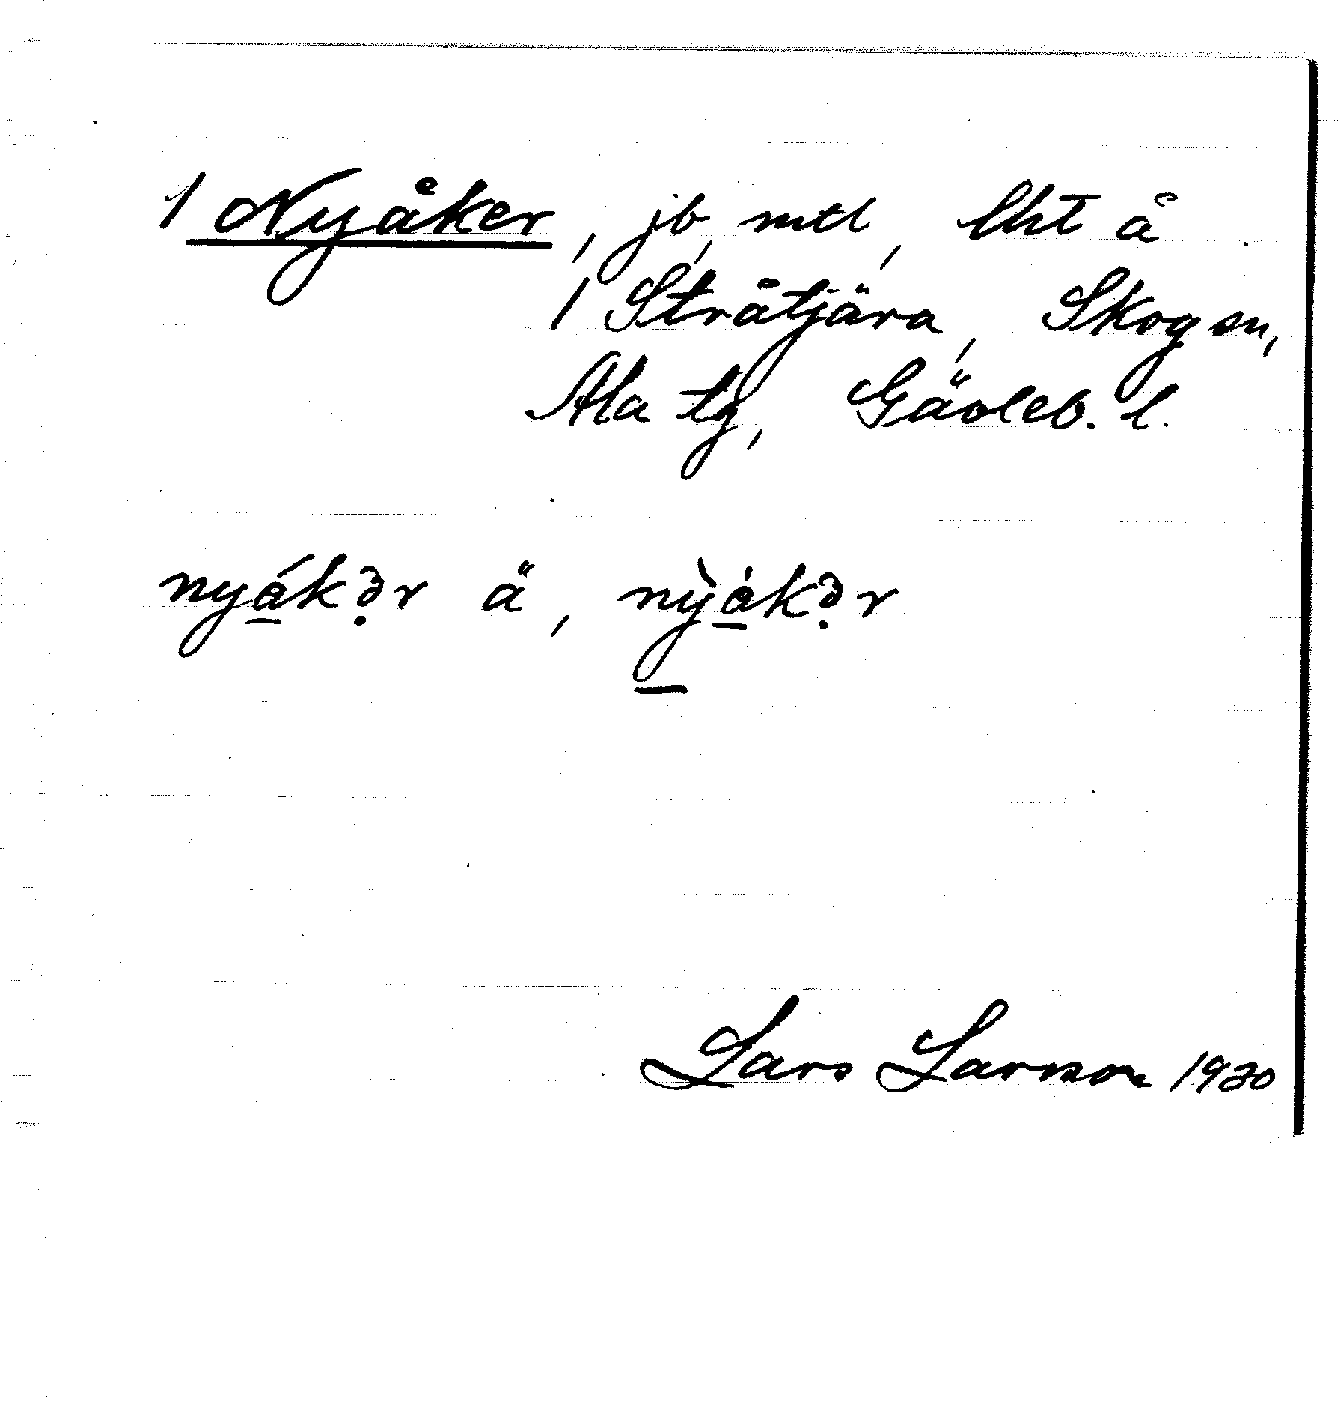 1 Nyåker, jb, mtl, lht å
1 Stråtjära, Skog sn,
Ala tg, Gävleb. l.
nyákər ä, nỳ̠ákər
Lars Larsson 1930